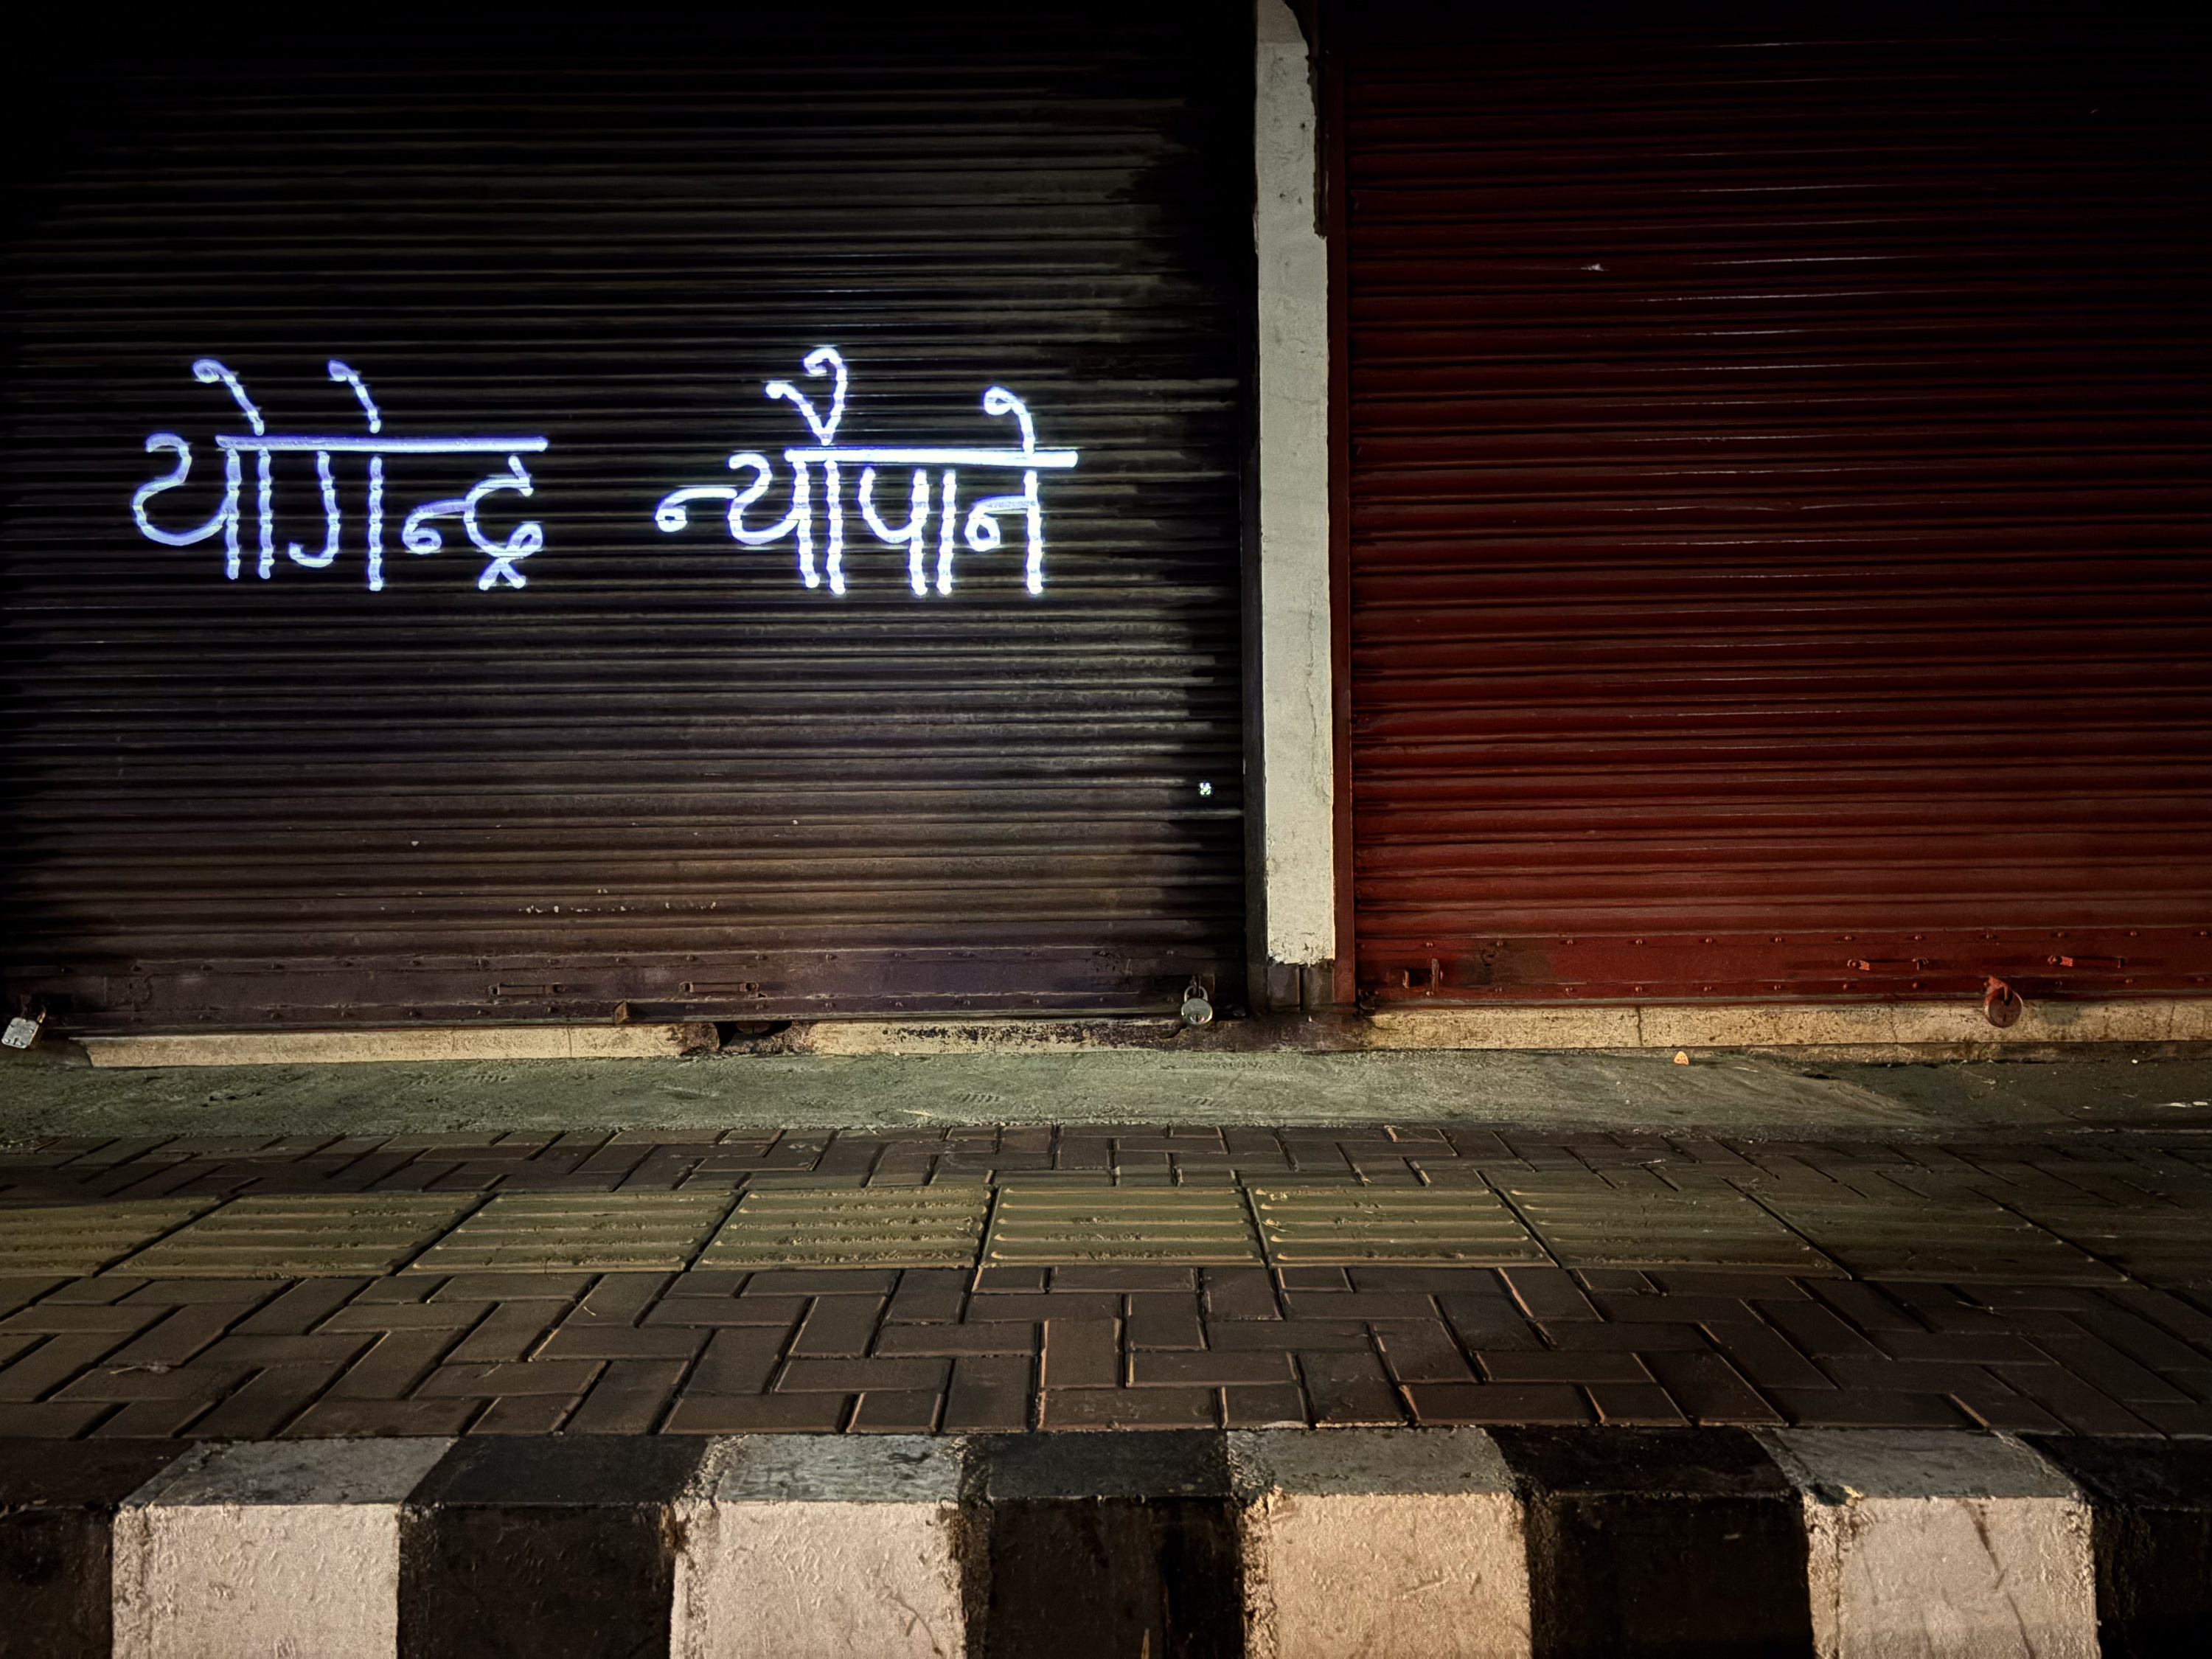 योगेन्द्र न्यौपाने